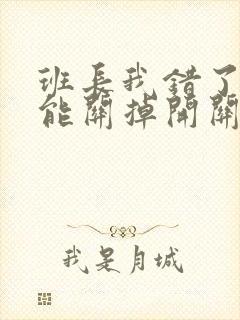 班长我错了
能關掉開關
我是月城